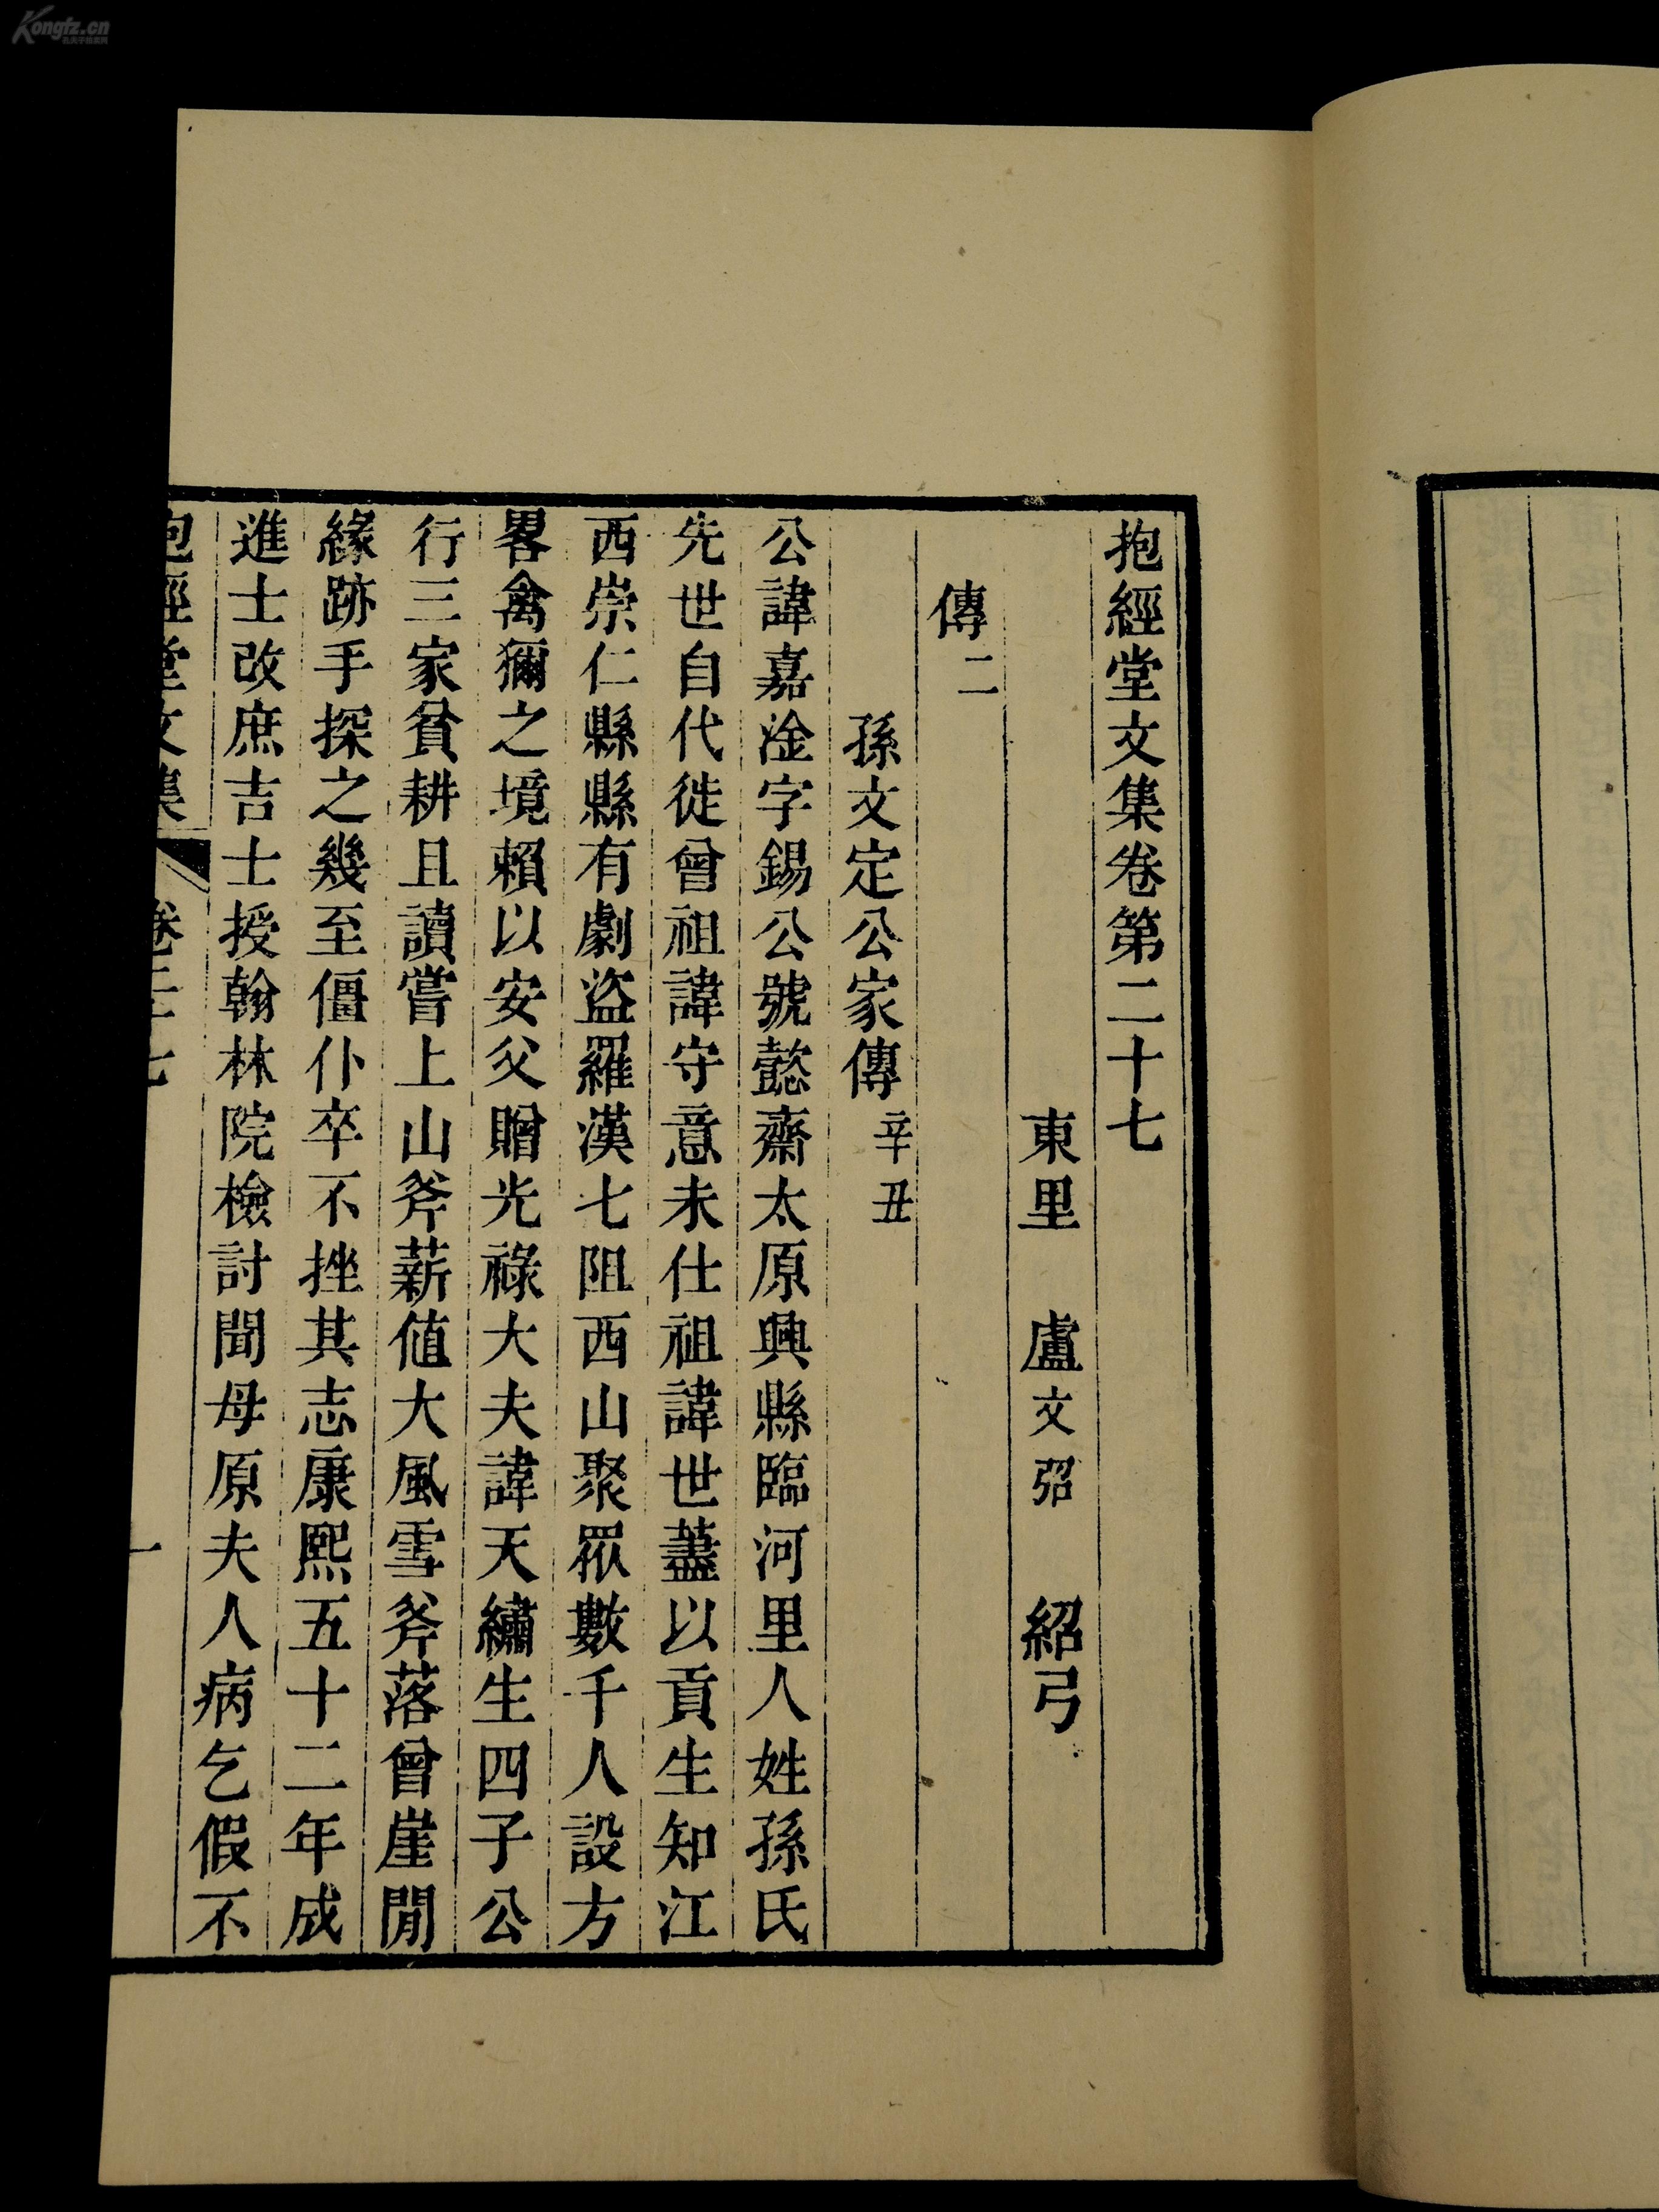 抱經堂文集卷第二十七
東里 盧文弨 紹弓
傳二
孫文定公家傳 辛丑
公諱嘉淦字錫公號懿齋太原興縣臨河里人姓孫氏
先世自代徙曾祖諱守意未仕祖諱世藎以貢生知江
西崇仁縣縣有劇盜羅漢七阻西山聚眾數千人設方
畧禽獮之境賴以安父贈光祿大夫諱天繡生四子公
行三家貧耕且讀嘗上山斧薪值大風雪斧落曾崖閒
緣跡手探之幾至僵仆卒不挫其志康熙五十二年成
進士改庶吉士授翰林院檢討聞母原夫人病乞假不
抱經堂文集 卷二十七 一
Kongfz.cn